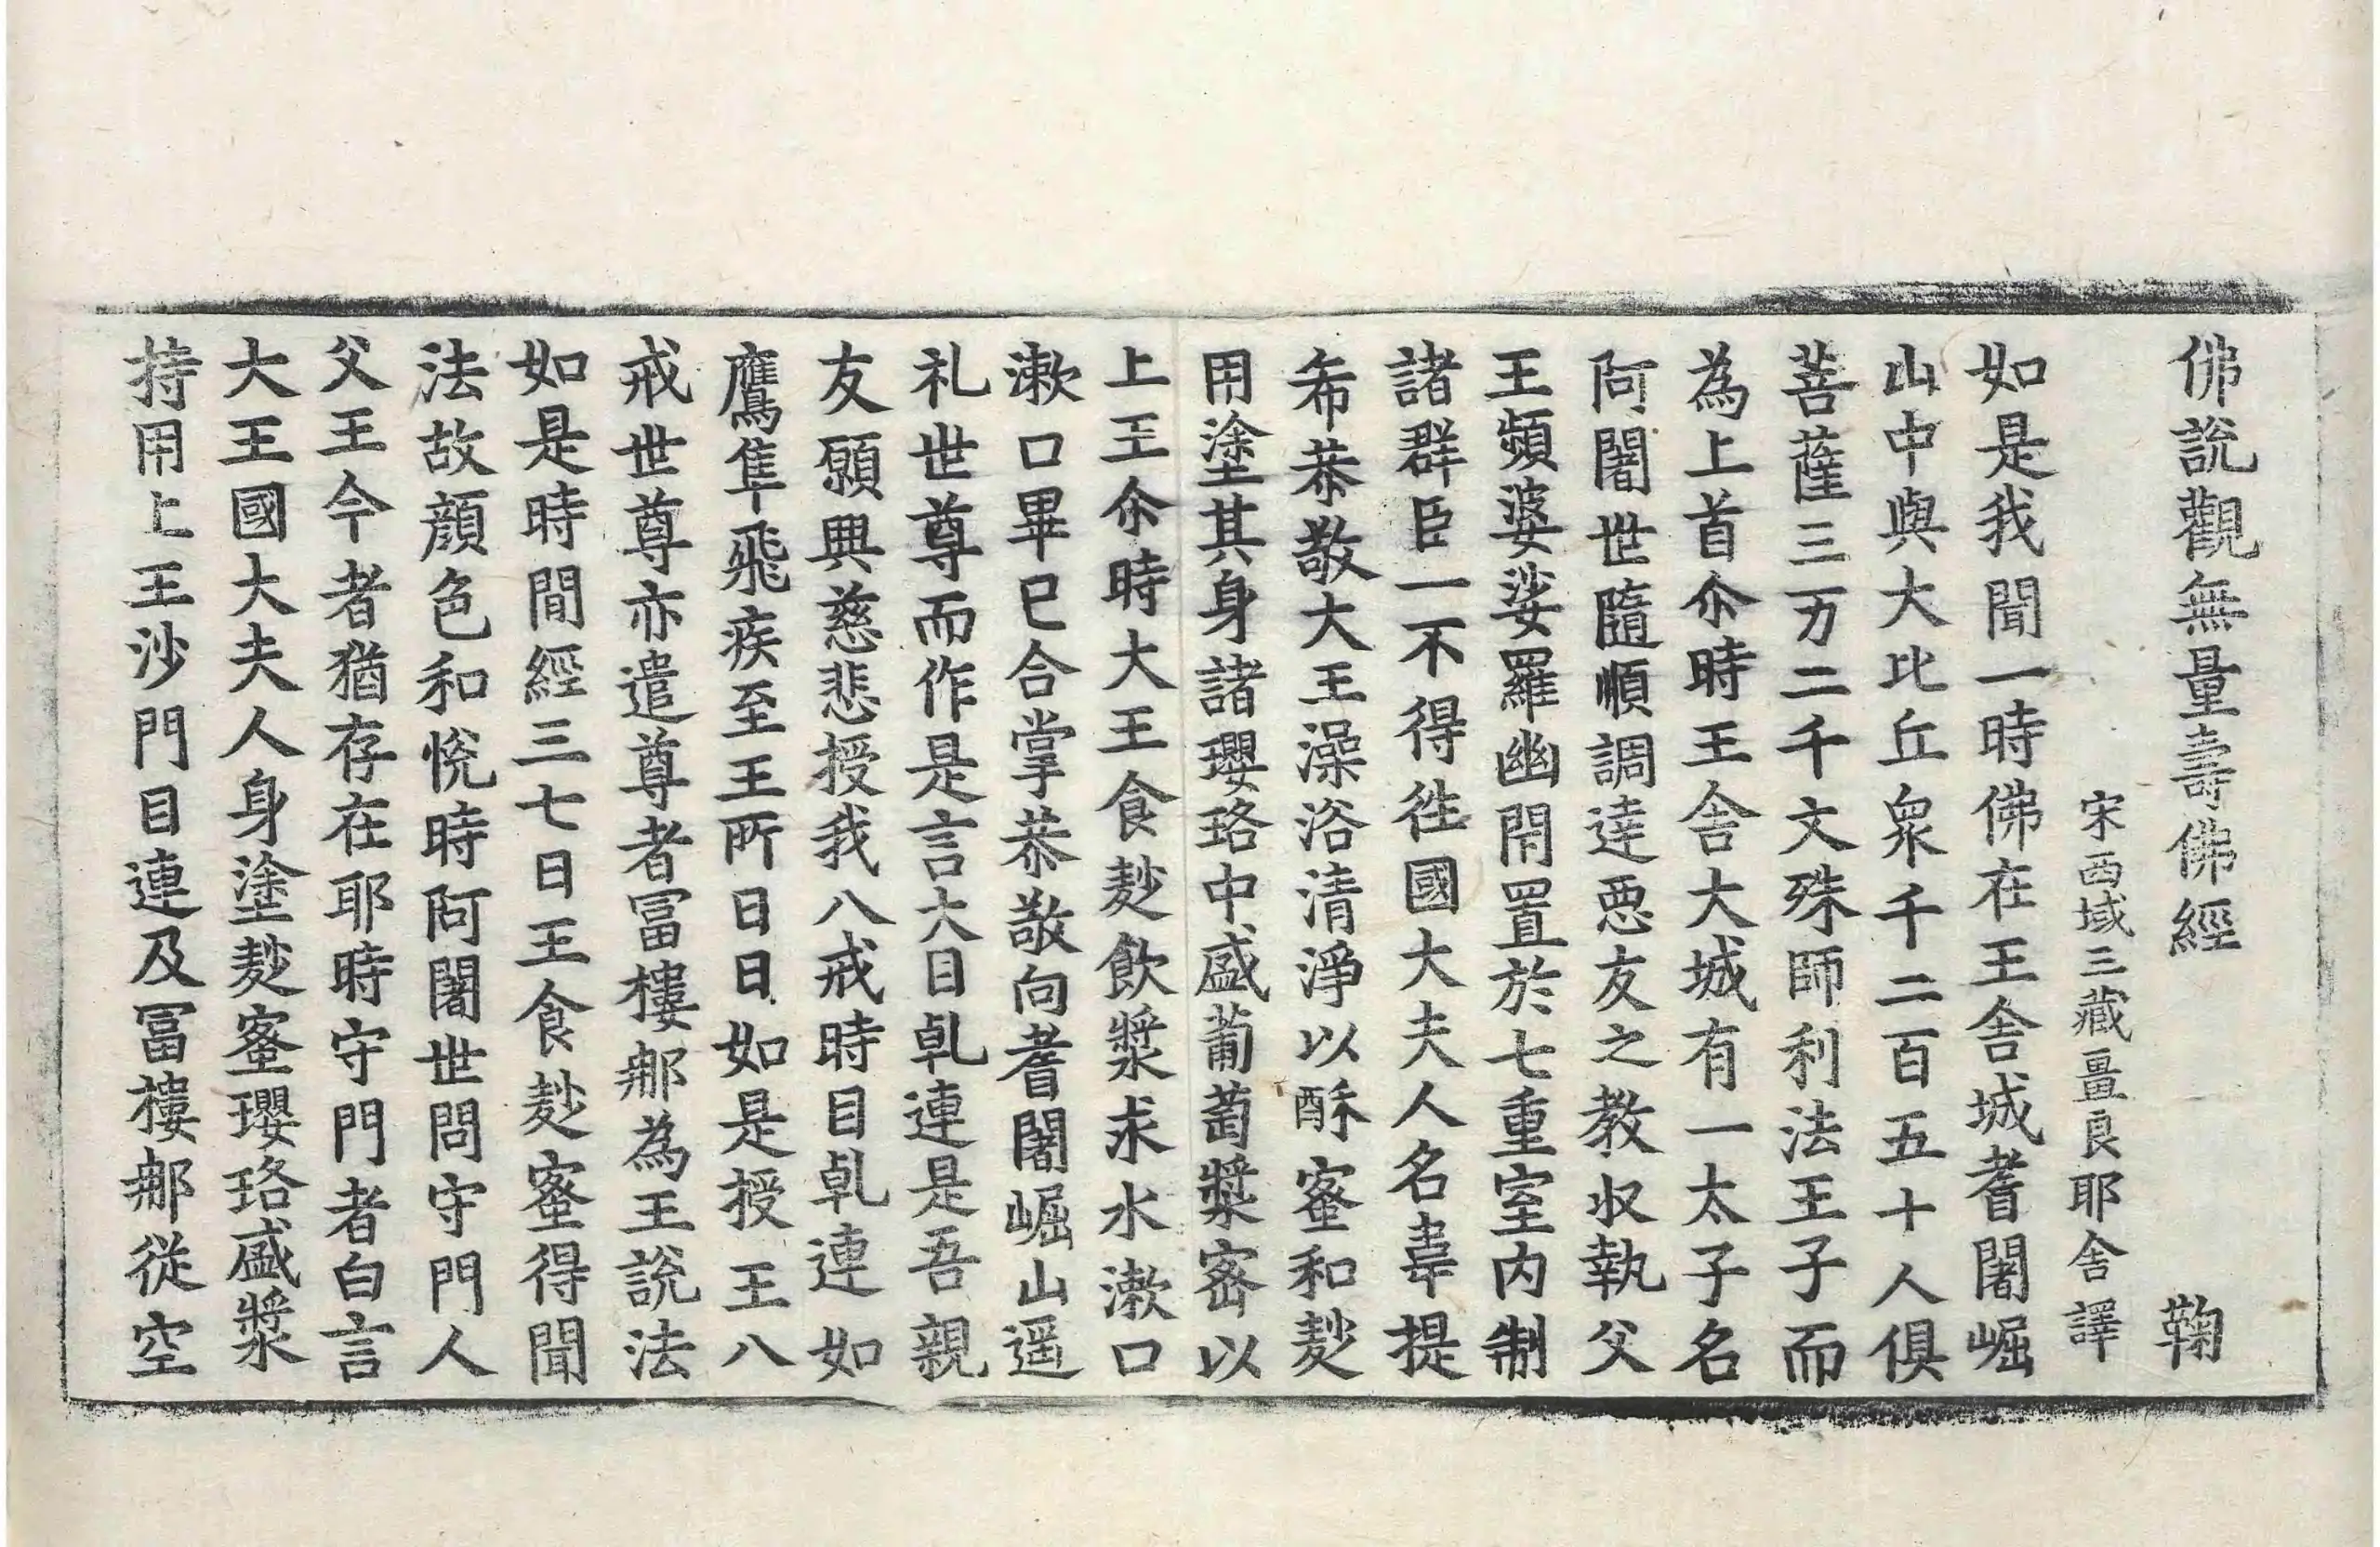 佛說觀無量壽佛經 鞠
宋西域三藏畺良耶舍譯
如是我聞一時佛在王舍城耆闍崛
山中與大比丘衆千二百五十人俱
菩薩三万二千文殊師利法王子而
為上首尒時王舍大城有一太子名
阿闍世隨順調達惡友之教收執父
王頻婆娑羅幽閇置於七重室內制
諸群臣一不得往國大夫人名韋提
希恭敬大王澡浴清淨以酥蜜和麨
用塗其身諸瓔珞中盛葡萄漿密以
上王尒時大王食麨飲漿求水漱口
漱口畢已合掌恭敬向耆闍崛山遥
礼世尊而作是言大目乹連是吾親
友願興慈悲授我八戒時目乹連如
鷹隼飛疾至王所日日如是授王八
戒世尊亦遣尊者冨樓那為王說法
如是時間經三七日王食麨蜜得聞
法故顔色和悅時阿闍世問守門人
父王今者猶存在耶時守門者白言
大王國大夫人身塗麨蜜瓔珞盛漿
持用上王沙門目連及冨樓那從空